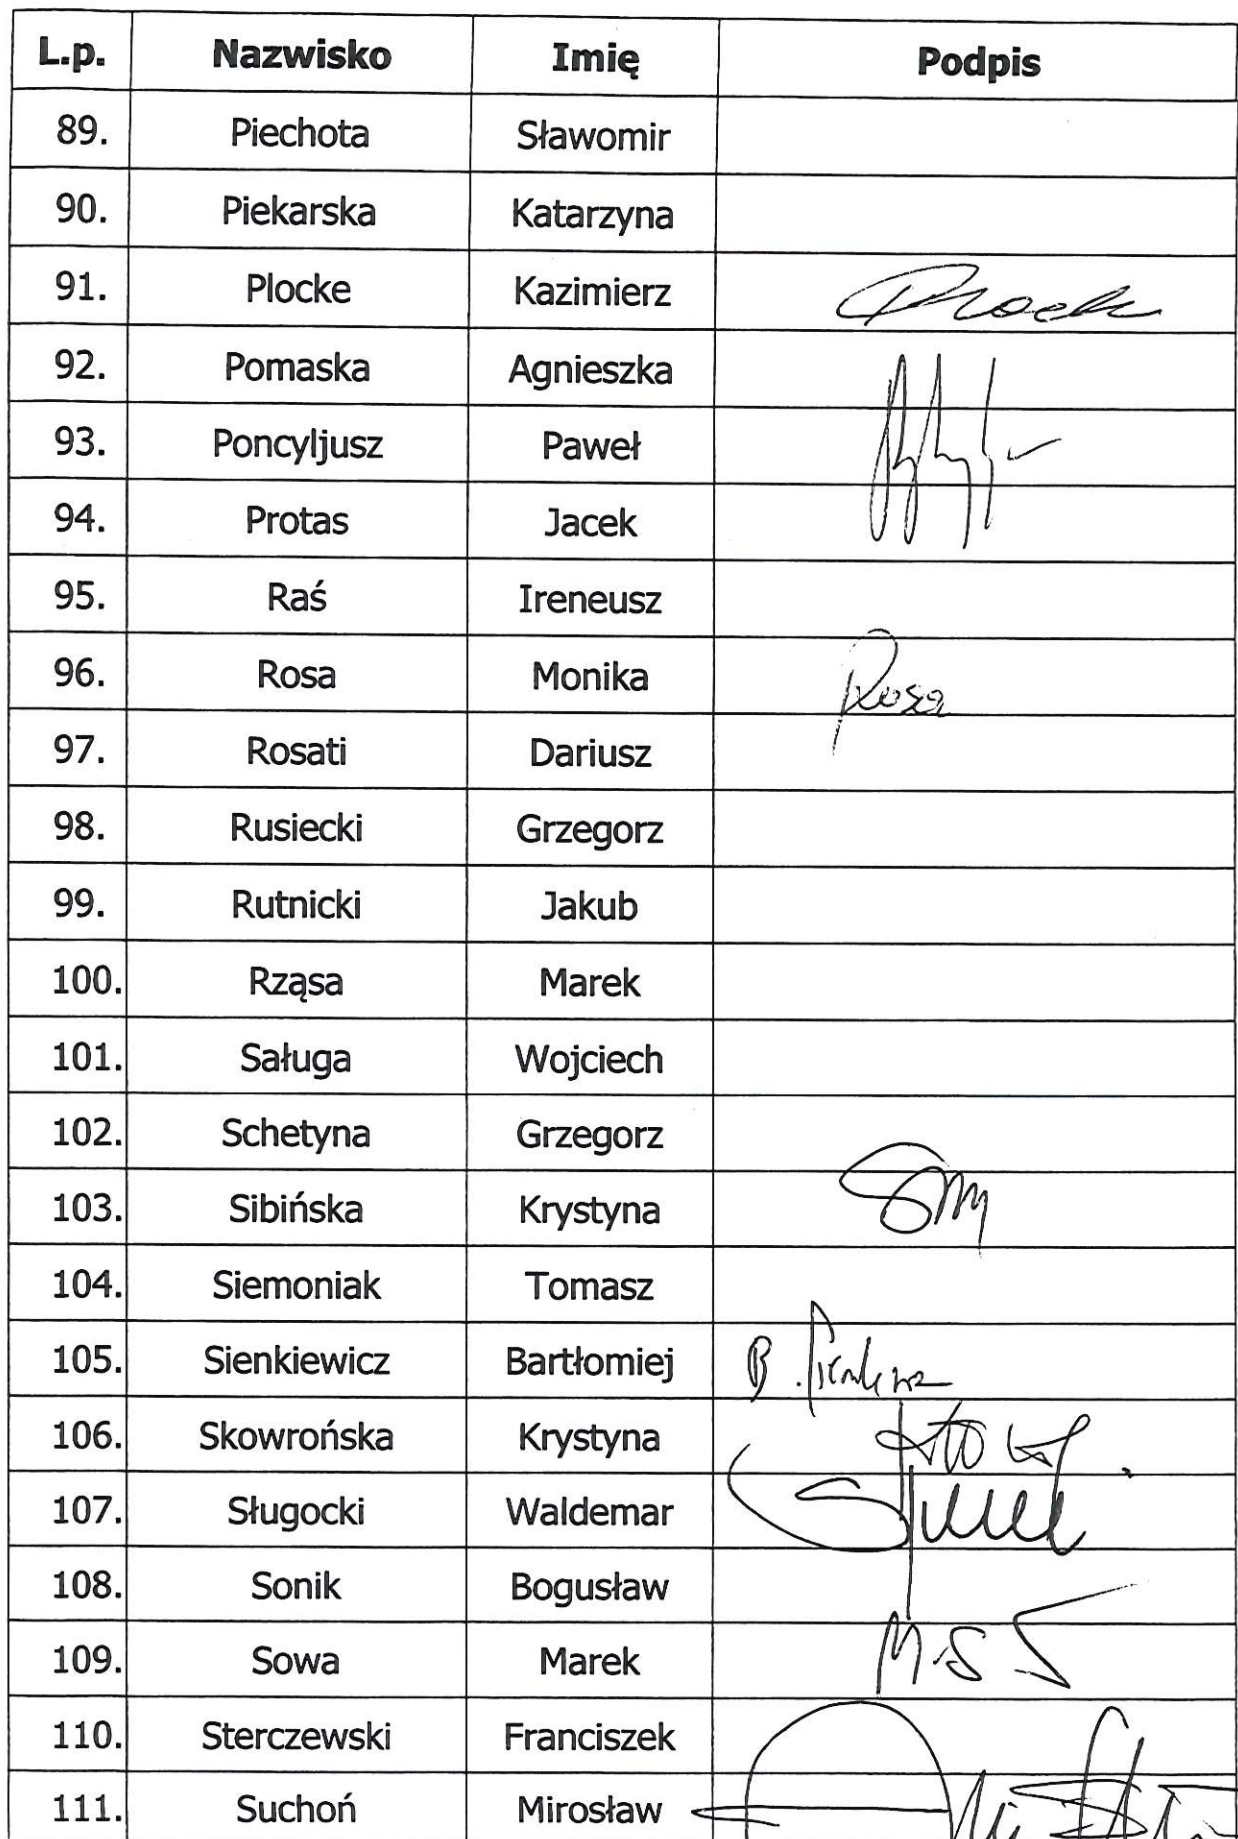 L.p. Nazwisko Imię Podpis
89. Piechota Sławomir
90. Piekarska Katarzyna
91. Plocke Kazimierz
92. Pomaska Agnieszka
93. Poncyljusz Paweł
94. Protas Jacek
95. Raś Ireneusz
96. Rosa Monika Rosa
97. Rosati Dariusz
98. Rusiecki Grzegorz
99. Rutnicki Jakub
100. Rząsa Marek
101. Saługa Wojciech
102. Schetyna Grzegorz
103. Sibińska Krystyna
104. Siemoniak Tomasz
105. Sienkiewicz Bartłomiej B.
106. Skowrońska Krystyna
107. Sługocki Waldemar
108. Sonik Bogusław
109. Sowa Marek
110. Sterczewski Franciszek
111. Suchoń Mirosław